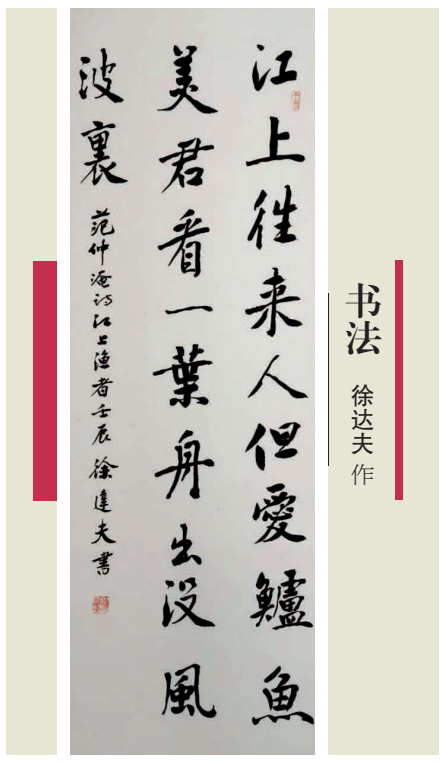 江上往来人但愛鱸魚
美君看一葉舟出没風
波裏
范仲淹诗江上渔者壬辰徐達夫書
书法
徐达夫 作